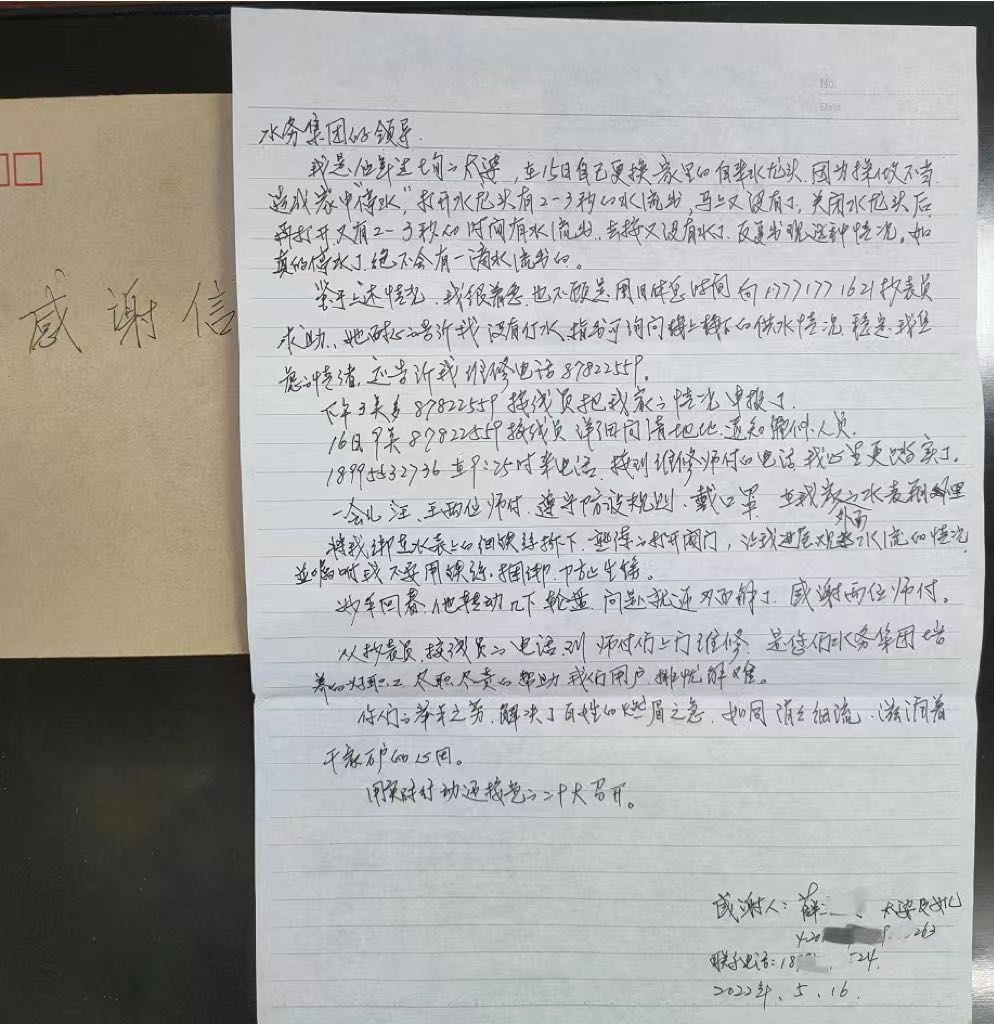 No.
Date
感谢信
水务集团的领导.
我是位年过七旬的太婆,在15日自己更换家里的自来水龙头,因为操做不当
造成家中“停水”,打开水龙头有2-3秒的水流出,马上又没有了,关闭水龙头后
再打开又有2-3秒的时间有水流出,去接又没有水了,反复出现这种情况。如
真的停水了,绝不会有一滴水流出的。
鉴于上述情况,我很着急,也不顾是周日休息时间向17771771621抄表员
求助,她耐心的告诉我没有停水,指出可询问楼上楼下的供水情况,稳定我焦
急的情绪,还告诉我维修电话87822559。
下午3点多87822559接线员把我家的情况申报了.
16日9点87822559接线员详细问清地址,通知维修人员.
18995532736在9:25时来电话,接到维修师付的电话我心里更踏实了。
一会儿汪、王两位师付,遵守防疫规则,戴口罩,在我家的水表
外面
将我绑在水表上的细铁丝拆下,熟练的打开阀门,让我进屋观察水流的情况
並嘱咐我不要用铁丝捆绑,防止生锈。
妙手回春,他转动几下轮盘,问题就迎刃而解了,感谢两位师付。
从抄表员,接线员的电话到师付们上门维修,是您们水务集团培
养的好职工,尽职尽责的帮助我们用户,排忧解难。
你们的举手之劳,解决了百姓的燃眉之急,如同涓涓细流,滋润着
千家万户的心田。
用实际行动迎接党的二十大召开。
感谢人:薛
420 263
联系电话:18 24.
2022年.5.16